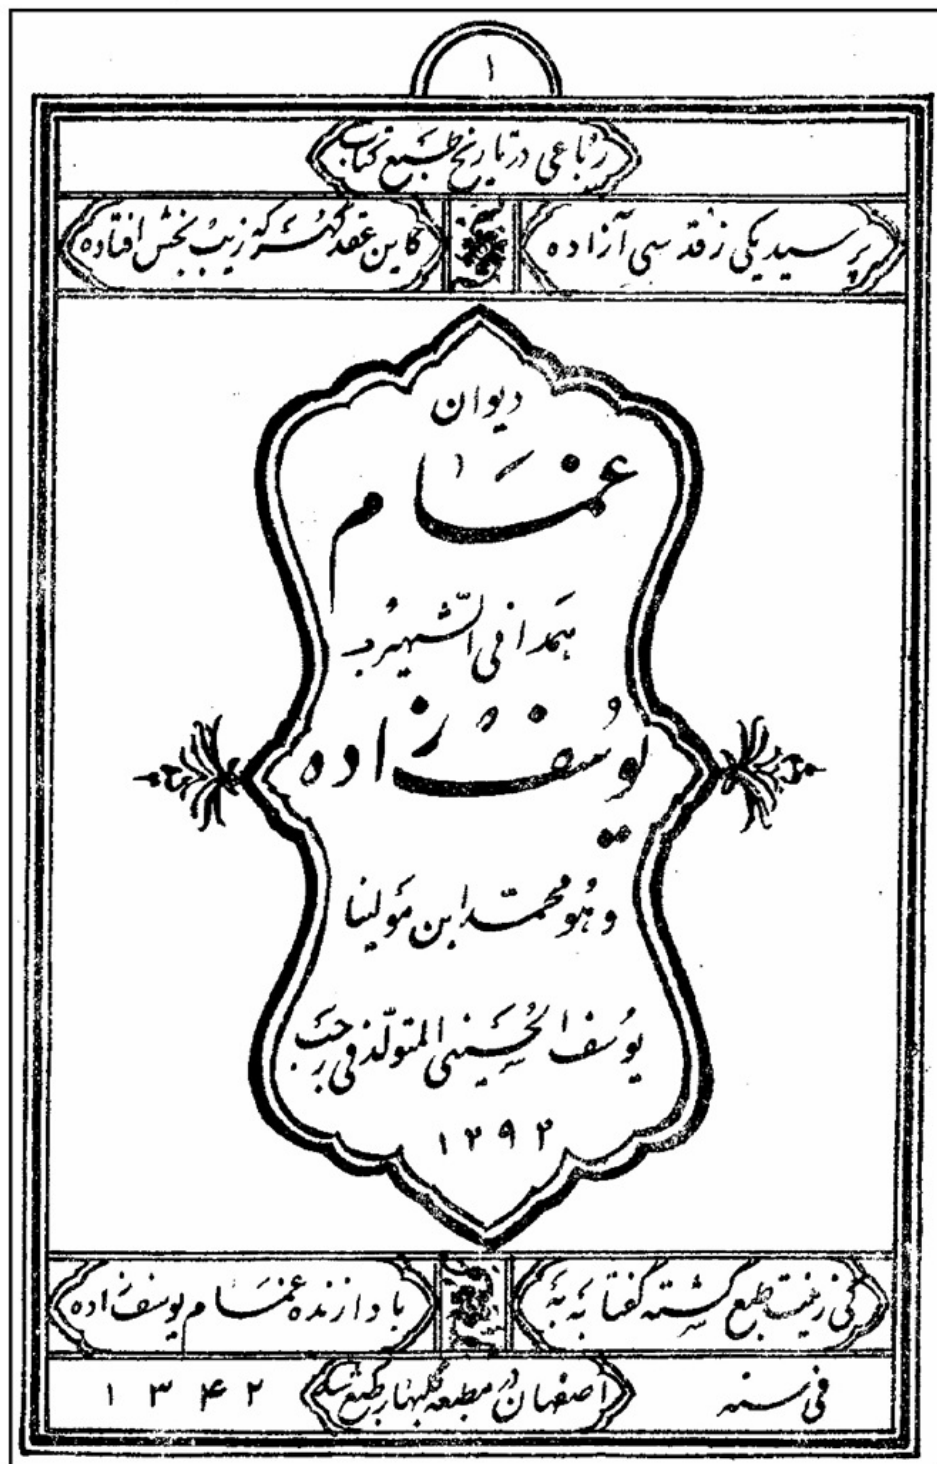 ۱
رباعی در تاریخ طبع کتاب
پرسید یکی ز قدسی آزاده کاین عقد گهر که زیب بخش افتاده
دیوان
غمام
همدانی الشهیر به
یوسف زاده
و هو محمد ابن مولینا
یوسف الحسینی المتولد فی رجب
۱۲۹۲
کی زینت طبع گشته گفتا به به با دا زنده غمام یوسف زاده
فی سنه اصفهان در مطبعه گلبهار طبع شد ۱۳۴۲